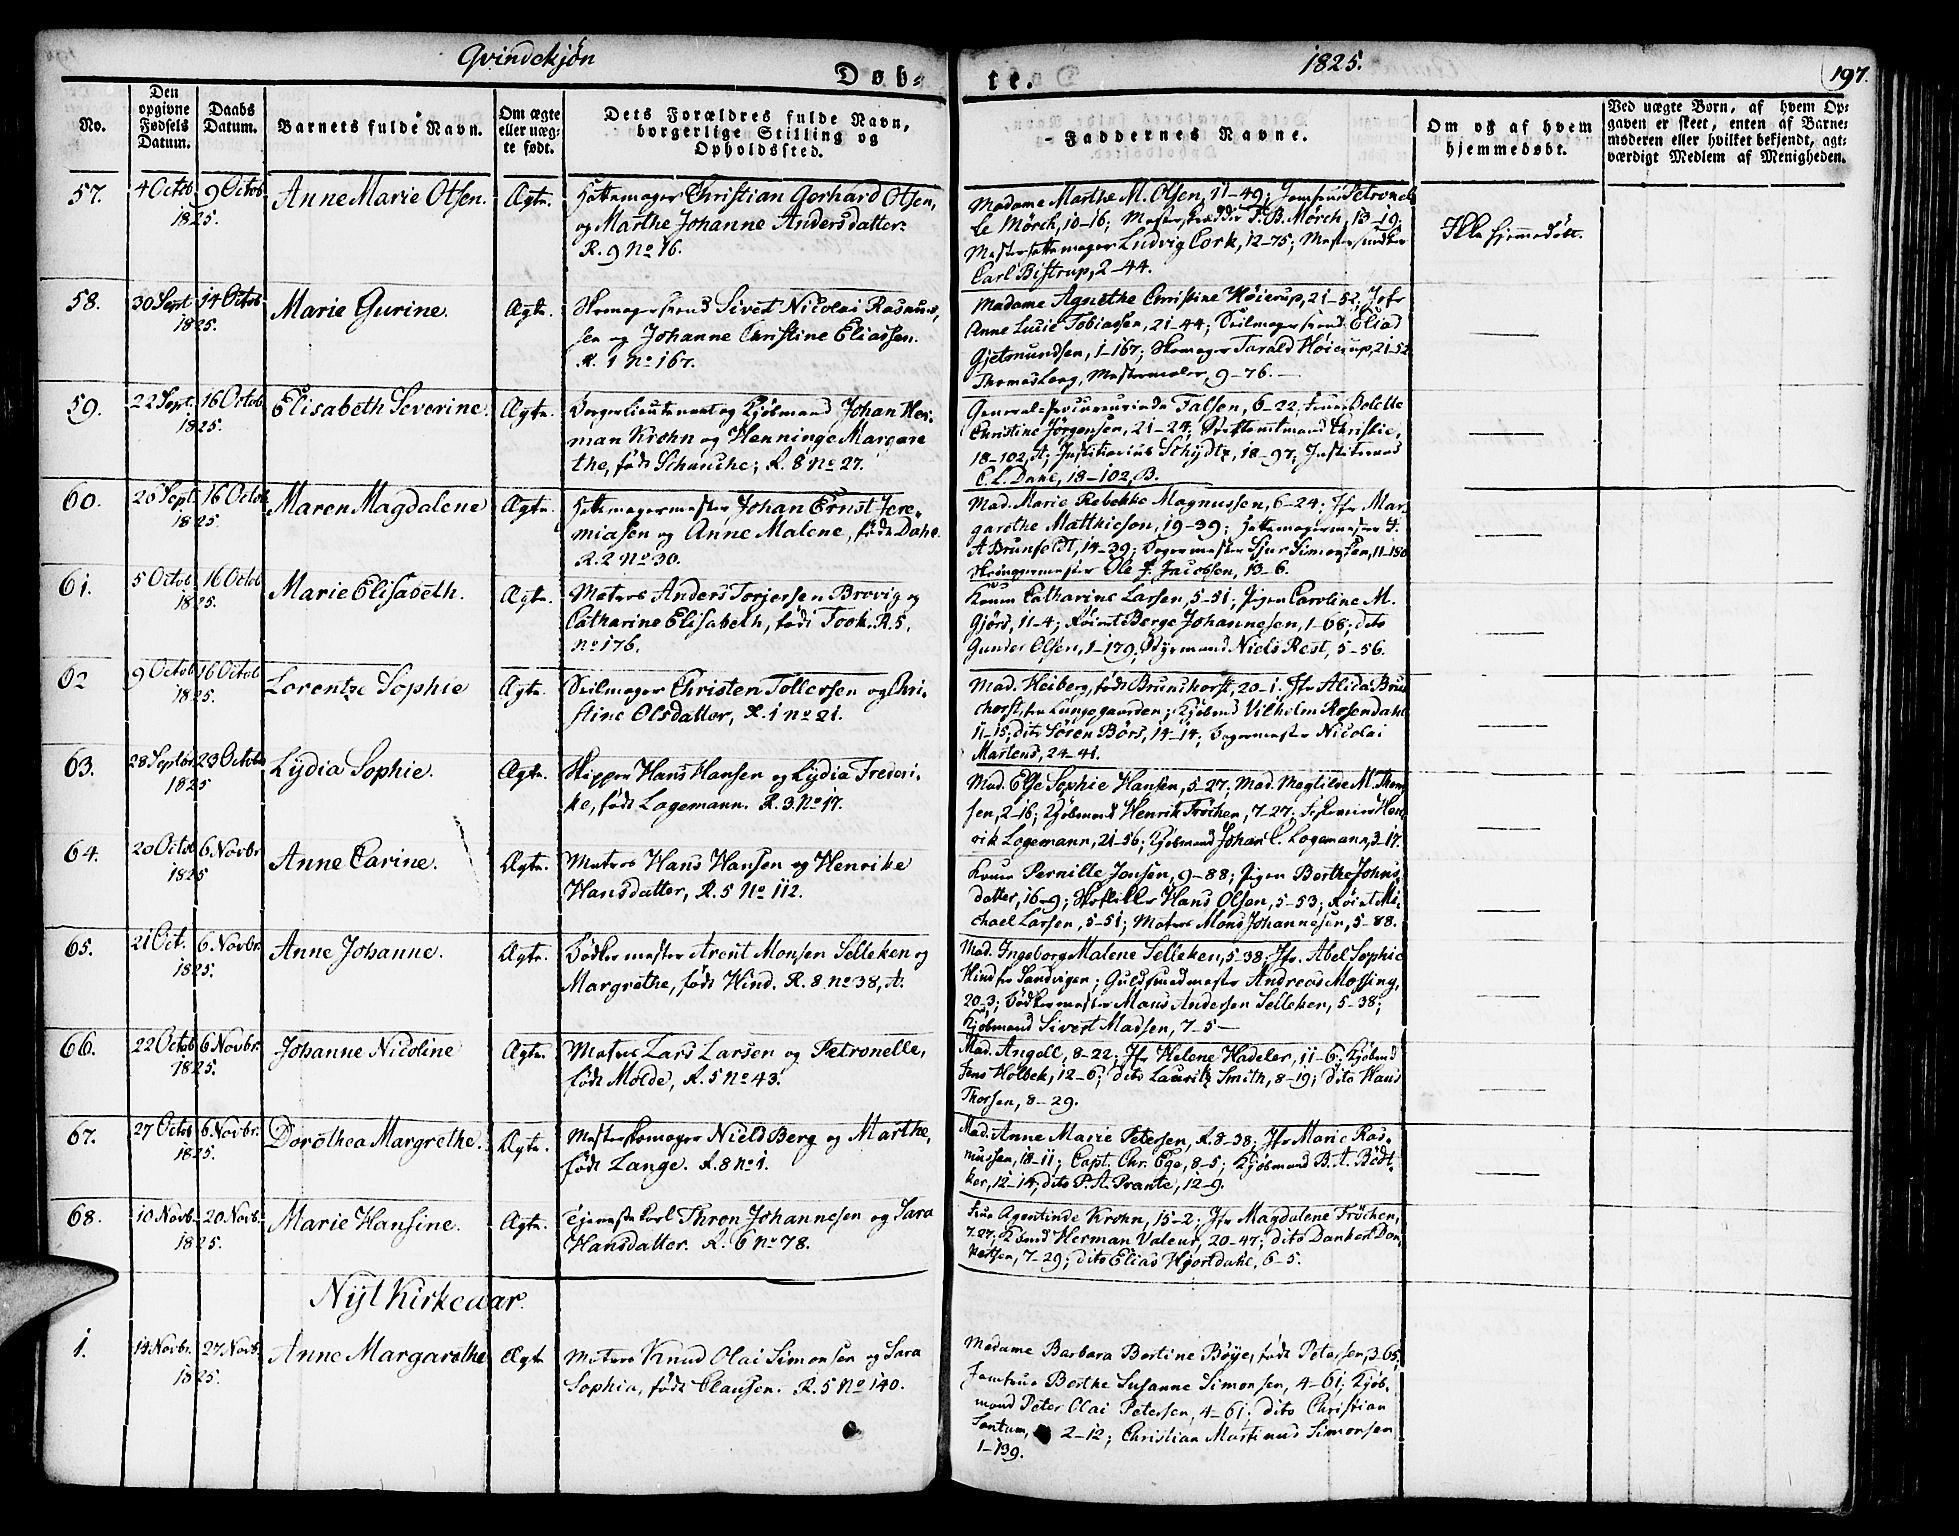 Qvindekjön
Döb-
te.
1825.
197.
No.
Den opgivne Fødsels Datum.
Daabs Datum.
Barnets fulde Navn.
Om ægte eller uægte født.
Dets Forældres fulde Navn, borgerlige Stilling og Opholdssted.
Faddernes Navne.
Om og af hvem hjemmedøbt.
Ved uægte Børn, af hvem Opgaven er skeet, enten af Barnemoderen eller hvilket bekjendt, agtværdigt Medlem af Menigheden.
57.
4 Octob 1825.
9 Octob
Anne Marie Olsen.
Ægte.
Hattemager Christian Gerhard Olsen,
og Marthe Johanne Andersdatter.
R. 9 No 16.
Madame Marthe M. Olsen, 11-49; Jomfrue Petronel-
le Mörch, 10-16; Mesterskrædder F. B. Mörch, 13-19;
Mesterhattemager Ludvig Cork, 12-75; Mestersmeker
Carl Bistrup, 2-44.
Ikke hjemmedöbt.
58.
30 Sept 1825.
14 Octob
Marie Gurine.
Ægte.
Skomagersvend Sivert Nicolai Rasmus-
sen og Johanne Christine Eliassen.
R. 1 No 167.
Madame Agnethe Christine Höierup, 21-52; Jofr
Anne Lucie Tobiassen, 21-44; Seilmagersvend Elias
Gjetmundsen, 1-167; Skomager Tarald Höierup, 21-52
Thomas Lang, Mestermaler, 9-76.
59.
22 Sept. 1825.
16 Octob
Elisabeth Severine.
Ægte.
Borgerlieutenant og Kjöbmand Johan Her-
man Krohn og Henninge Margare
the, född Schanche; R. 8 No 27.
General-procureurinde Falsen, 6-22; Frue Bolette
Christine Jörgensen, 21-24; Stiftamtmand Christie,
18-102, A; Justitiarius Schydtz, 18-97; Justitsraad
C. L. Dahe, 18-102, B.
60.
26 Sept 1825.
16 Octob
Maren Magdalene
Ægte.
Hattemagermester Johan Ernst Jere-
miasen og Anne Malene, född Dahl.
R. 2 No 30.
Mad. Marie Rebekke Magnussen, 6-24; Jfr Mar-
garethe Matthiesen, 19-39; Hattemagermester H.
A Brunfeldt, 14-39; Bagermester Sjur Simonsen, 11-180
Ole J. Jacobsen, 13-6.
61.
5 Octob 1825.
16 Octob
Marie Elisabeth.
Ægte.
Matros Anders Torjersen Brovig og
Catharine Elisabeth, född Took. R. 5,
No 176.
Konen Catharine Larsen, 5-51; Pigen Caroline M.
Gjörs, 11-4; Börge Johannesen, 1-68; dito
Gunder Olsen, 1-179; Styrmand Niels Rest, 5-56.
62
9 Octob 1825.
16 Octob
Lorentze Sophie
Ægte.
Seilmager Christen Tollersen og Chri-
stine Olsdatter, R. 1 No 21.
Mad. Heiberg, född Brunchorst, 20-1. Jfr Alida Brun
chorst, fra Lungegaarden; Kjöbmd Vilhelm Rosendahl
11-15; dito Sören Börs, 14-14; Bagermester Nicolai
Martens, 24-41.
63.
28 Septbr. 1825
23 Octob
Lydia Sophie.
Ægte.
Skipper Hans Hansen og Lydia Frederi-
ke, född Logemann. R. 3. No 17.
Mad. Else Sophie Hansen, 5-27; Mad. Magtilde M. Thom-
sen, 2-16; Kjöbmand Henrik Fröchen, 7-27; Hen-
rik Logemann, 21-56; Kjöbmand Johan C. Logemann, 3-17.
64.
20 Octob 1825
6 Novbr
Anne Carine.
Ægte.
Matros Hans Hansen og Henrike
Hansdatter, R. 5 No 112.
Konen Pernille Jansen, 9-88; Pigen Berthe Johns-
datter, 16-9; Hans Olsen, 5-53; Mi-
chael Larsen, 5-51; Matros Mons Johannesen, 5-88.
65.
21 Oct. 1825.
6. Novbr.
Anne Johanne.
Ægte.
Bödkermester Arent Monsen Selleken og
Margrethe, född Hind. R. 8 No 38, A.
Mad. Ingeborg Malene Selleken, 5-38; Jfr. Abel Sophie
Hind fra Sandvigen; Guldsmedmester Andreas Mossing,
20-3; Bödkermester Mons Andersen Selleken, 5-38;
Kjöbmand Sivert Madsen, 7-5
66.
22 Octob 1825.
6 Novbr.
Johanne Nicoline
Ægte.
Matros Lars Larsen og Petronelle,
född Molde, R. 5 No 43.
Mad. Angell, 8-22; Jfr Helene Hadeler, 11-6; Kjöbmd
Jens Holbek, 12-6; dito Lauritz Smith, 8-19; dito Hans
Thorsen, 8-29.
67.
27 Octob 1825.
6 Novbr.
Dorothea Margrethe.
Ægte.
Mesterskomager Nield Berg og Marthe,
född Lange. R. 8 No 1.
Mad. Anne Marie Petersen, R. 8-38; Jfr Marie Ras-
mussen, 18-11; Capt. Chr. Ege, 8-5; Kjöbmand B. A. Bödt-
ker, 12-14; dito P. A. Prante, 12-9.
68.
10 Novb. 1825.
20 Novb.
Marie Hansine.
Ægte.
Tjenestekarl Thron Johannesen og Sara
Hansdatter. R. 6 No 78.
Frue Agentinde Krohn, 15-2; Jfr Magdalene Fröchen,
7-27; Kbmd Herman Valeur, 20-47; dito Dankert Dan-
kertsen, 7-29; dito Elias Hjortdahl, 6-5.
Nyt Kirkeaar.
1.
14 Novbr. 1825.
27 Novb.
Anne Margarethe
Ægte
Matros Knud Olai Simonsen og Sara
Sophia, född Clausen. R. 5 No 140.
Madame Barbara Bertine Böye, född Petersen, 3-65;
Jomfrue Berthe Susanne Simonsen, 4-61; Kjöb-
mand Peter Olai Petersen, 4-61; dito Christian
Sontum, 2-12; Christian Martinus Simonsen
1-139.